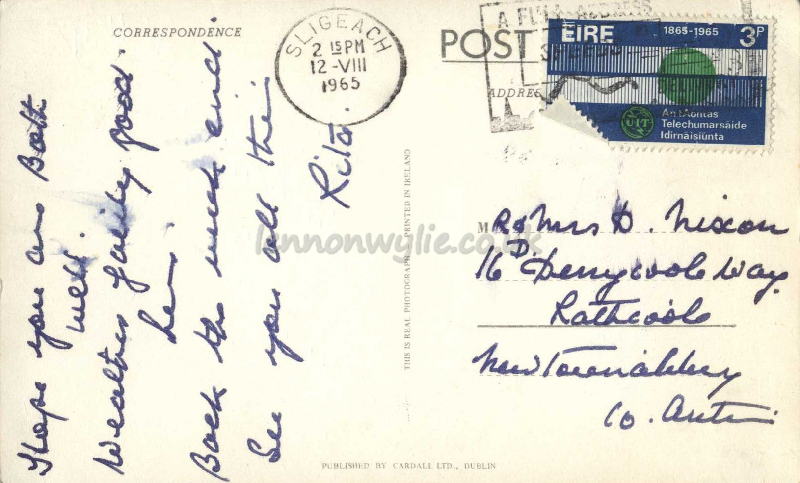 CORRESPONDENCE
Hope you are Both
well.
Weather fairly good
here
Back this week end
See you all then.
Rita.
SLIGEACH
2 15 PM
12-VIII
1965
POST
ADDRE
A FULL ADDRESS
SPEEDS
ÉIRE
1865-1965
3P
UIT
An tAontas
Telechumarsáide
Idirnáisiúnta
MR & Mrs D. Nixon
16D Derrycoole Way
Rathcoole
Newtownabbey
Co. Antrim
THIS IS REAL PHOTOGRAPH PRINTED IN IRELAND
PUBLISHED BY CARDALL LTD., DUBLIN
lennonwylie.co.uk